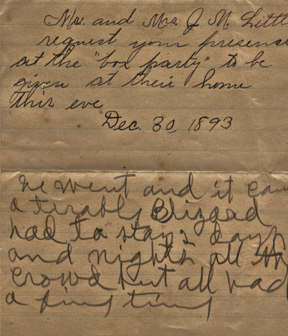 Mr. and Mrs J. M. Little
request your presense
at the "box party" to be
given at their home
this eve
Dec. 30, 1893
We went and it cam
a terably Blizard
had to stay 2 days
and nights all the
crowd but all had
a fine time